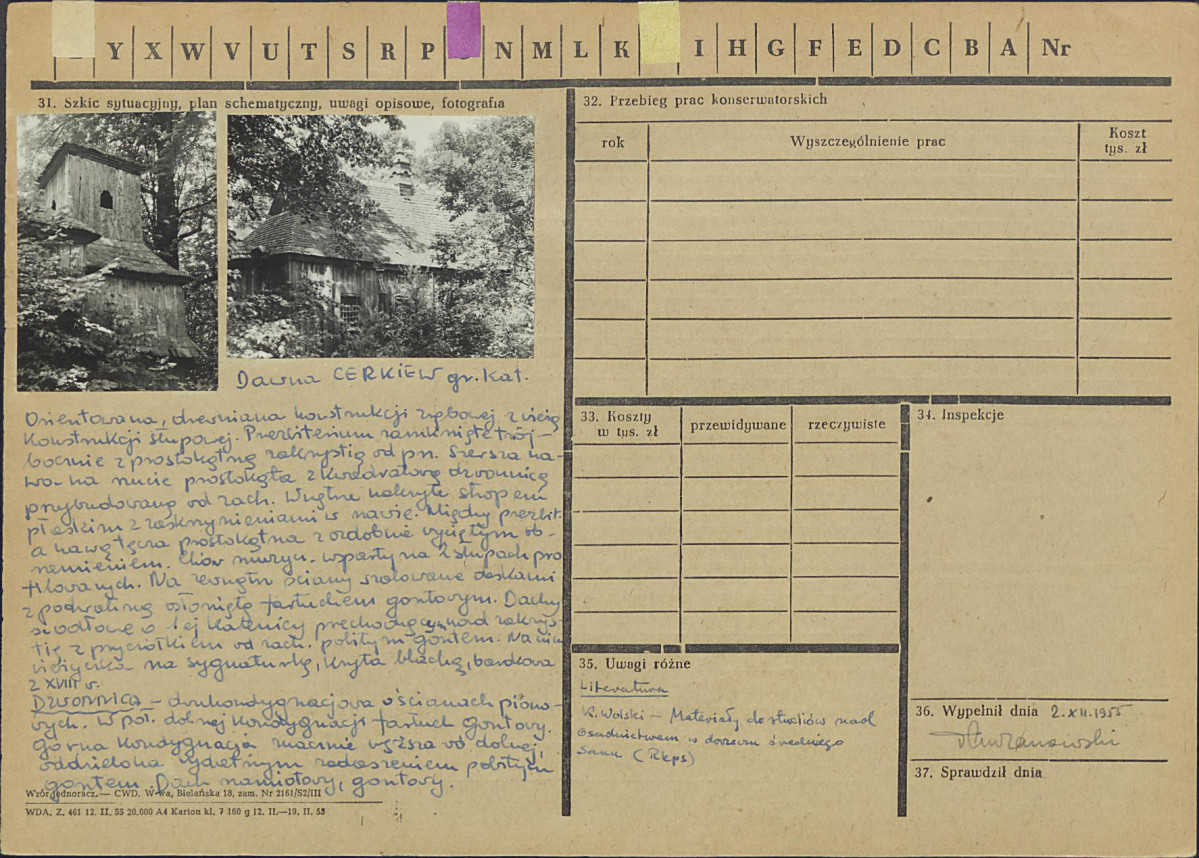 Y X W V U T S R P N M L K I H G F E D C B A Nr
31. Szkic sytuacyjny, plan schematyczny, uwagi opisowe, fotografia
Dawna CERKIEW gr. kat.
Orientowana, drewniana konstrukcji zrębowej z wieżą
konstrukcji słupowej. Prezbiterium zamknięte trój-
bocznie z prostokątną zakrystią od pn. Szersza na-
wa na rzucie prostokąta z kwadratową dzwonnicą
przybudowaną od zach. Wnętrze nakryte stropem
płaskim z zaskrzynieniami w nawie. Między prezbit.
a nawą tęcza prostokątna z ozdobnie wyciętym ob-
ramieniem. Chór muzyczn. wsparty na 2 słupach pro
filowanych. Na zewnątrz ściany szalowane deskami
z podwaliną osłoniętą fartuchem gontowym. Dachy
siodłowe o tej kalenicy przechodzącym nad zakrys-
tię z przyciółkiem od zach. pobitym gontem. Na nim
wieżyczka na sygnaturkę, kryta blachą, barokowa
z XVIII w.
DZWONNICA – dwukondygnacjowa o ścianach piono-
wych. W poł. dolnej kondygnacji fartuch gontowy.
Górna kondygnacja znacznie węższa od dolnej,
oddzielona wydatnym zadaszeniem pobitym
gontem. Dach namiotowy, gontowy.
Wzór jednoracz. — CWD. W-wa, Bielańska 18, zam. Nr 2161/S2/III
WDA. Z. 461 12. II. 55 20.000 A4 Karton kl. 7 160 g 12. II.—19. II. 55
32. Przebieg prac konserwatorskich
rok Wyszczególnienie prac Koszt
tys. zł
33. Koszty
w tys. zł przewidywane rzeczywiste
34. Inspekcje
35. Uwagi różne
Literatura
K. Wolski – Materiały do studiów nad
osadnictwem w dorzeczu średniego
Sanu (Rkps)
36. Wypełnił dnia 2.XII.1955
37. Sprawdził dnia